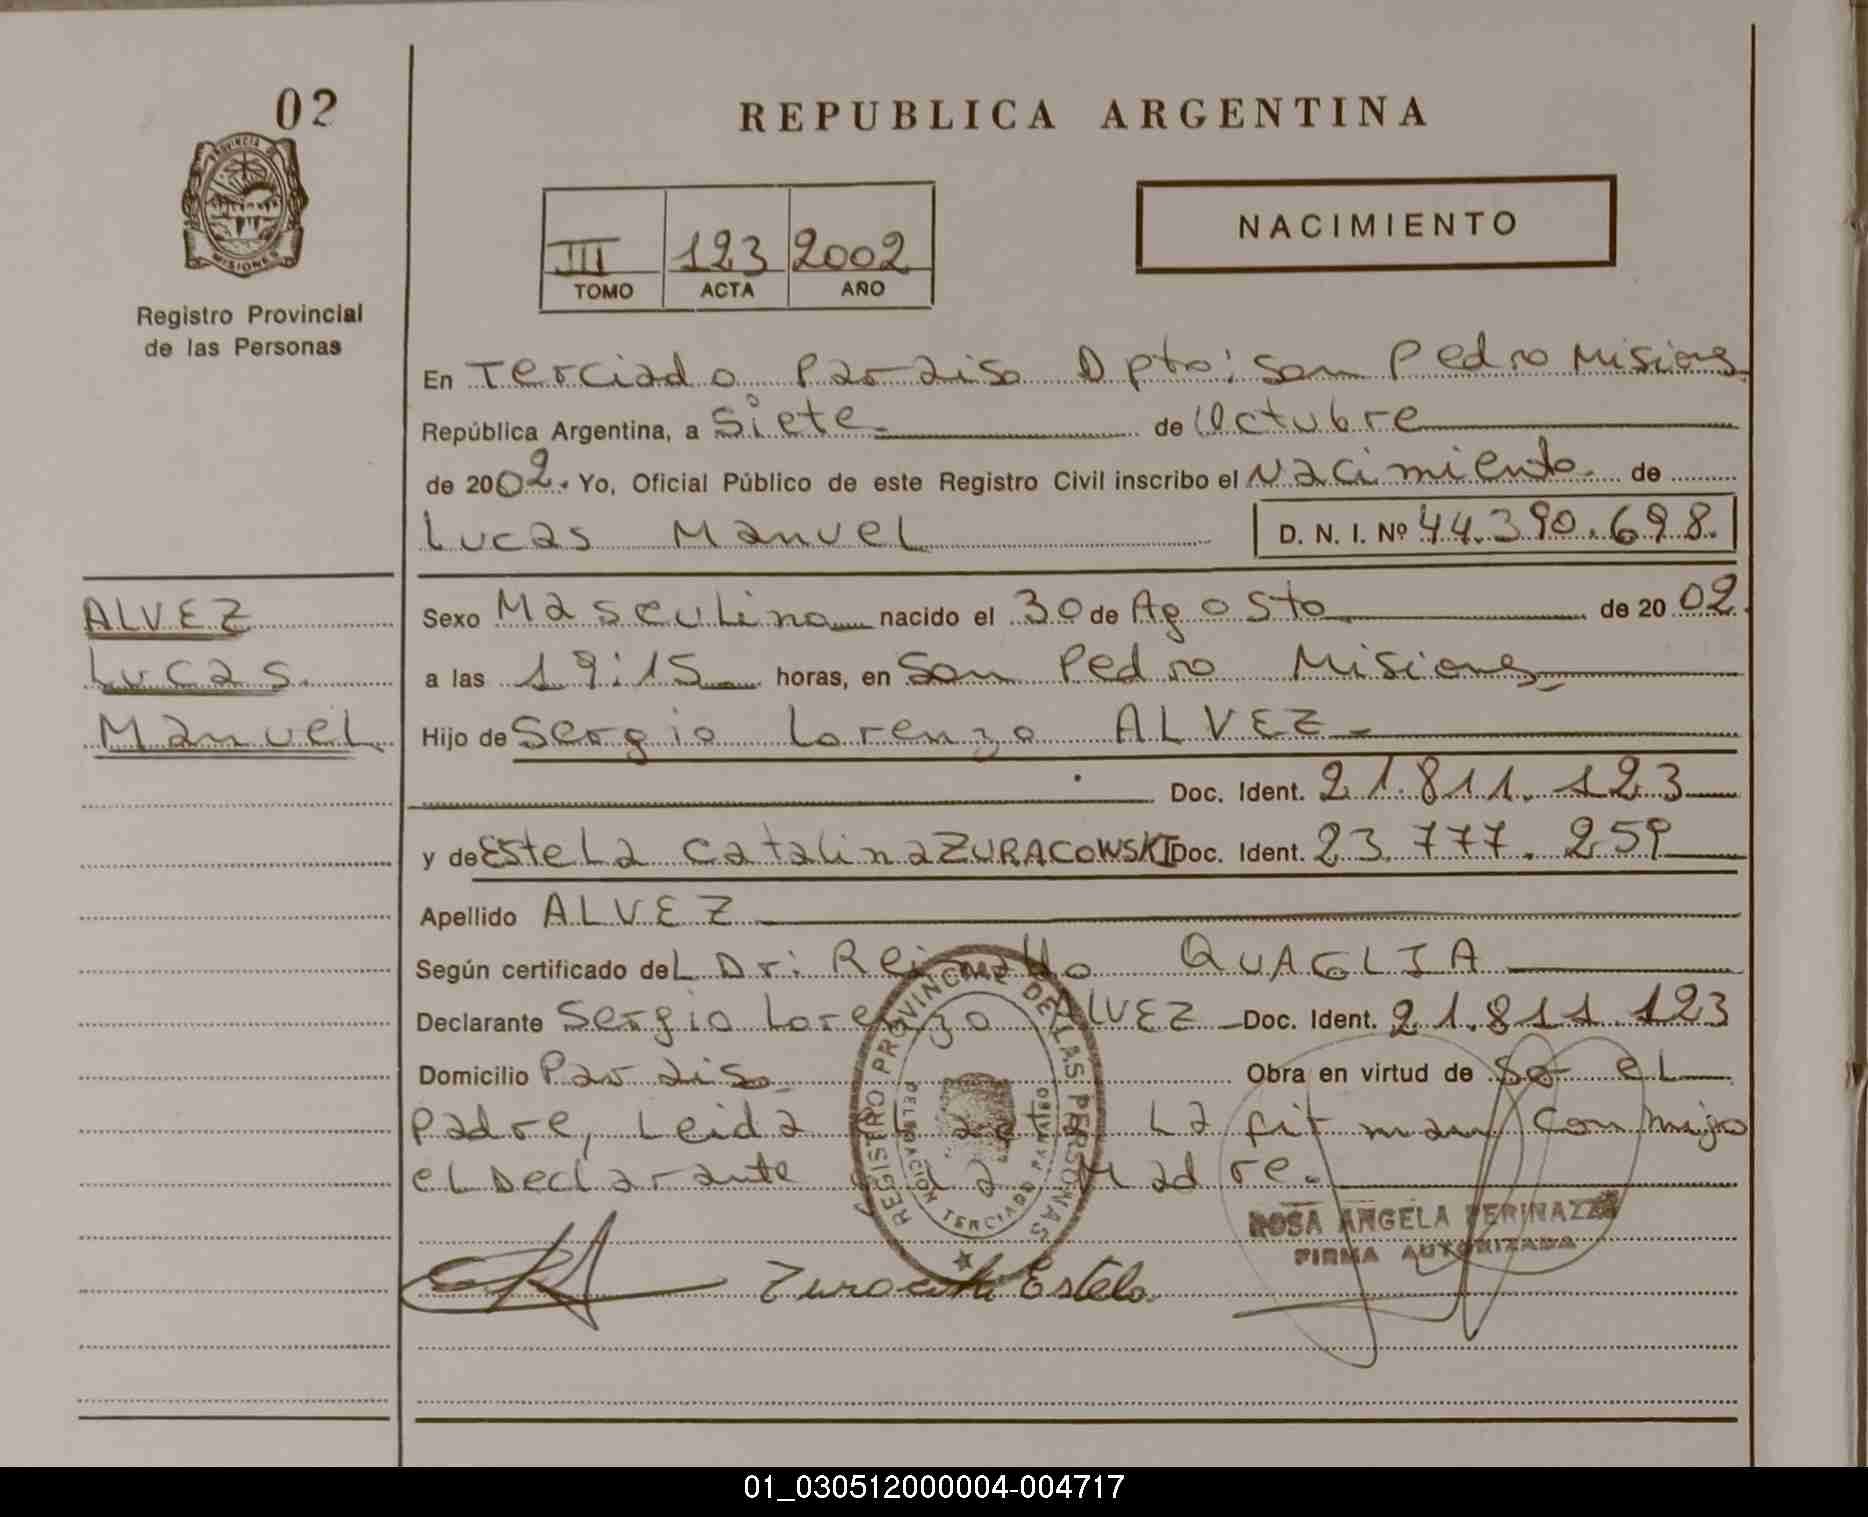 02
REPUBLICA ARGENTINA
PROVINCIA DE
MISIONES
Registro Provincial
de las Personas
III 123 2002
TOMO ACTA AÑO
NACIMIENTO
En Terciado Paraiso Dpto: San Pedro Misiones
República Argentina, a Siete de Octubre
de 2002. Yo, Oficial Público de este Registro Civil inscribo el Nacimiento de
Lucas Manuel D. N. I. Nº 44.390.698.
ALVEZ
Lucas
Manuel
Sexo Masculino nacido el 30 de Agosto de 2002.
a las 19:15 horas, en San Pedro Misiones
Hijo de Sergio Lorenzo ALVEZ
Doc. Ident. 21.811.123
y de EsteLa Catalina ZURACOWSKI Doc. Ident. 23.777.259
Apellido ALVEZ
Según certificado deL Dr: Reinaldo QUAGLIA
Declarante Sergio Lorenzo ALVEZ Doc. Ident. 21.811.123
Domicilio Paraiso Obra en virtud de Ser eL
Padre, Leida el acta La firman conmigo
eL Declarante y La Madre.
REGISTRO PROVINCIAL DE LAS PERSONAS
DELEGACION TERCIADO PARAISO
ROSA ANGELA PERINAZZO
FIRMA AUTORIZADA
Estela
01_030512000004-004717